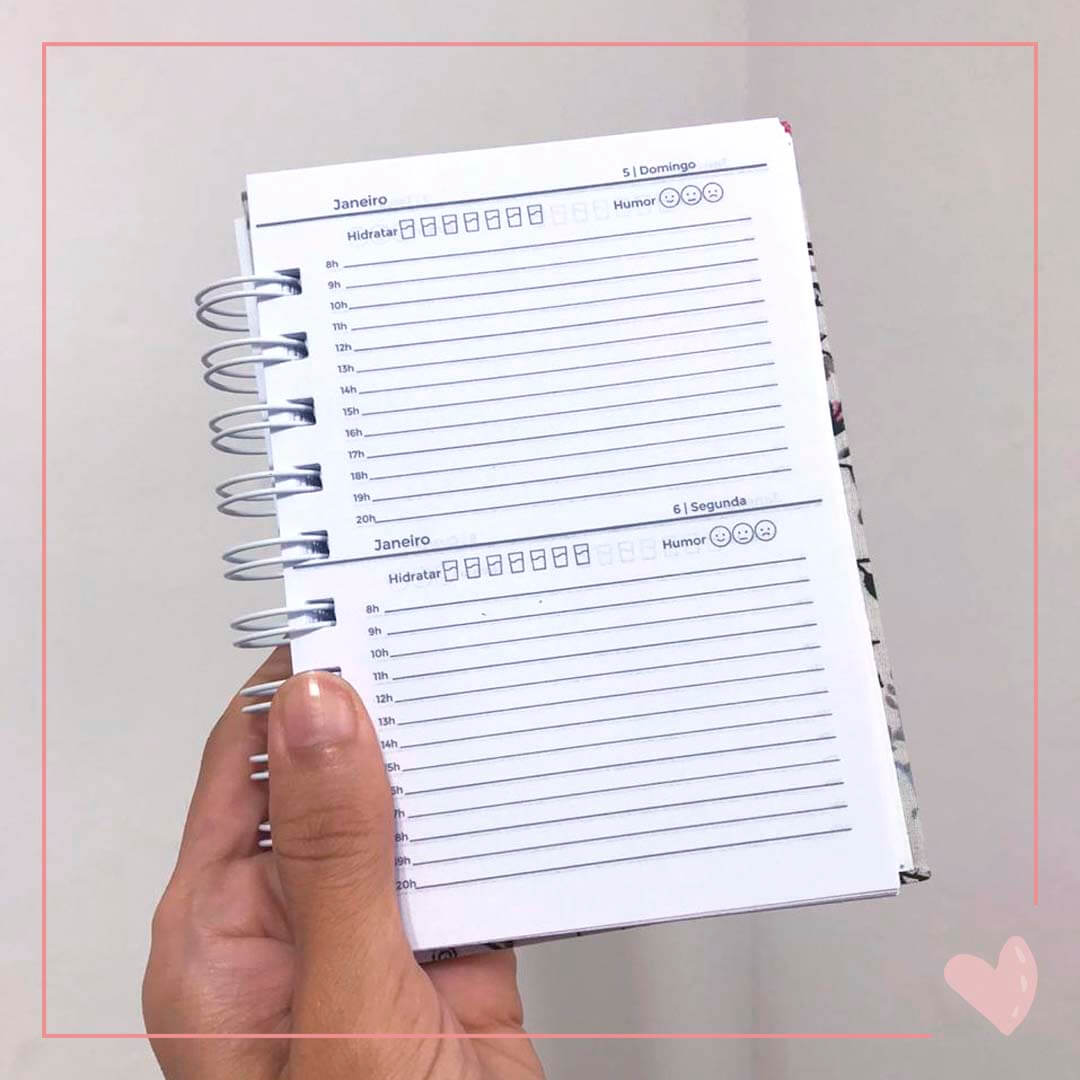 Janeiro 5 | Domingo
Hidratar Humor
8h
9h
10h
11h
12h
13h
14h
15h
16h
17h
18h
19h
20h
Janeiro 6 | Segunda
Hidratar Humor
8h
9h
10h
11h
12h
13h
14h
5h
6h
7h
8h
19h
20h